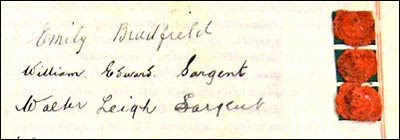 Emily Bradfield
William. Edward. Sargent
Walter Leigh Sargent